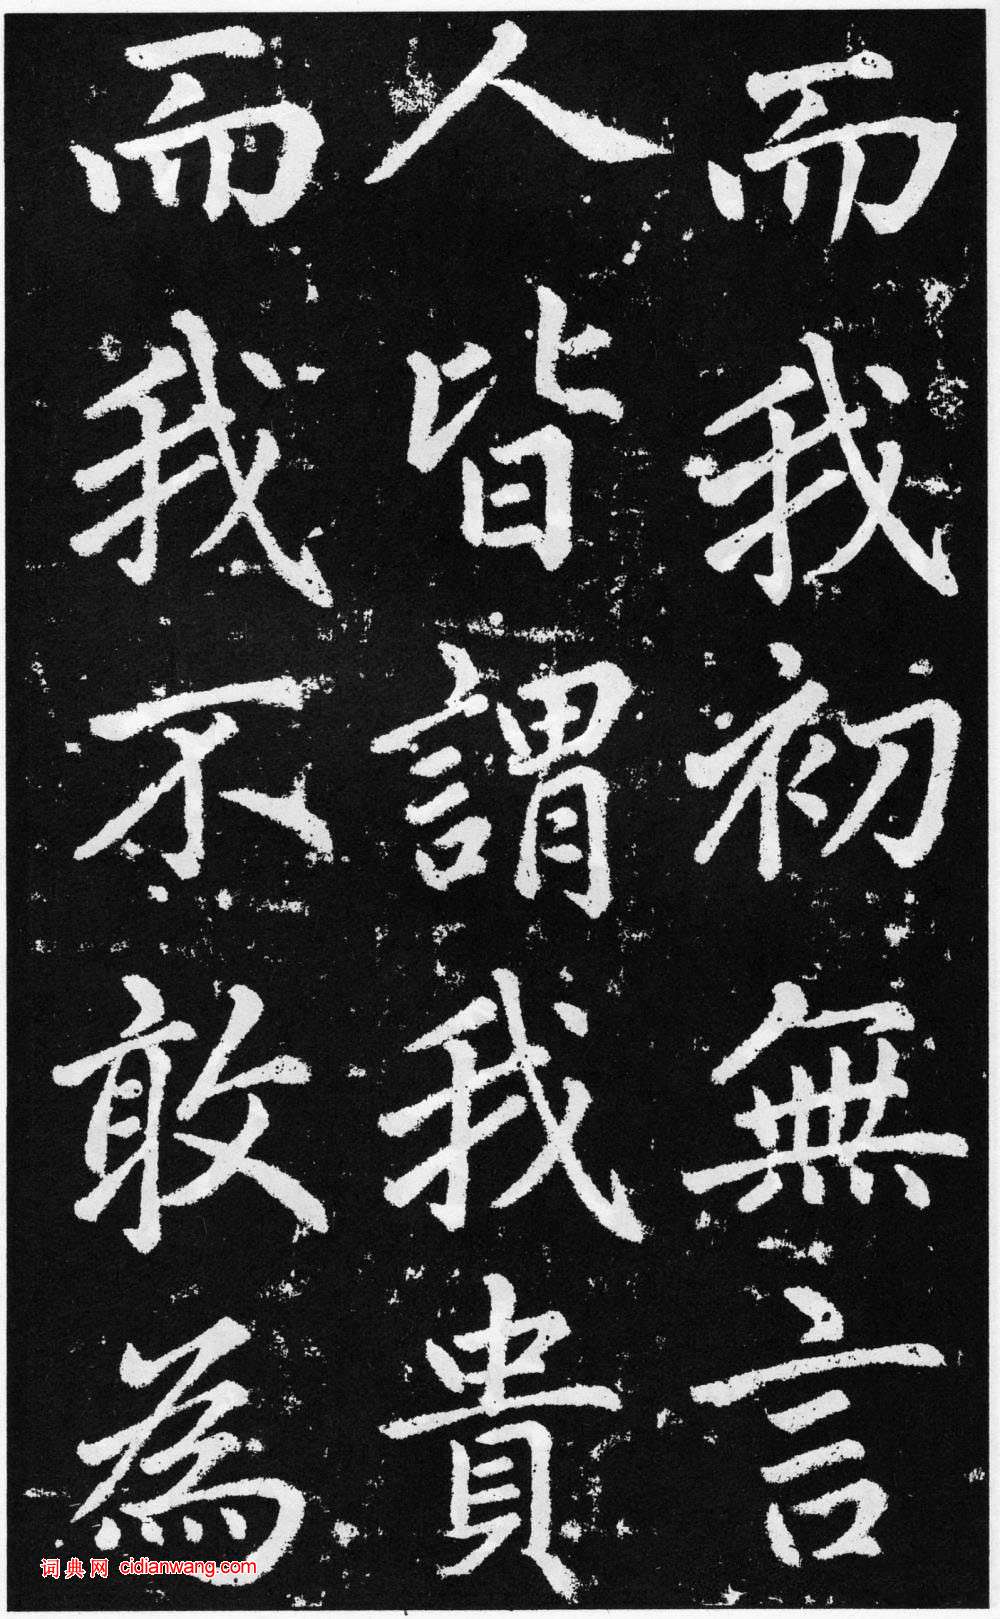 而我初無言
人皆謂我貴
而我不敢為
词典网 cidianwang.com